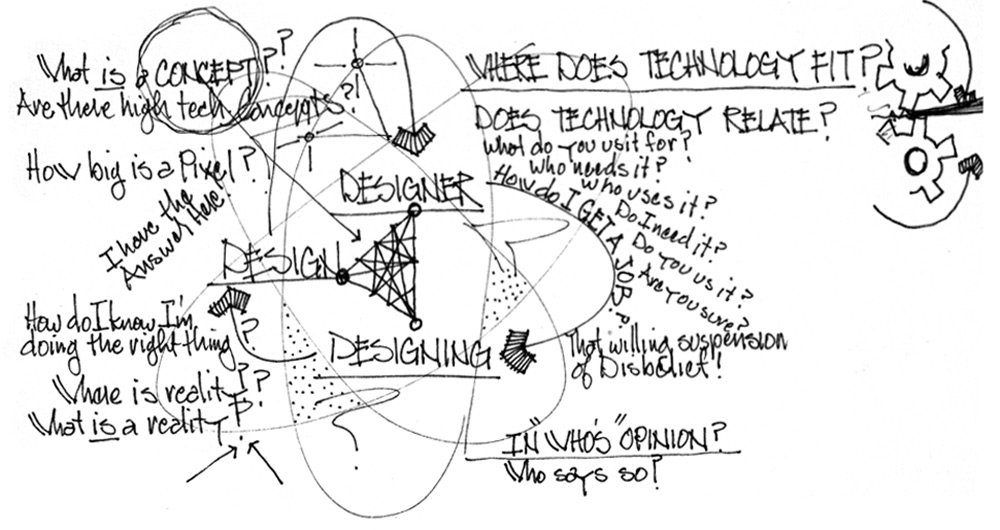 What is a CONCEPT??
Are there high tech Concepts?!
How big is a Pixel?
I have the
Answer Here!
DESIGNER
DESIGN
DESIGNING
How do I know I'm
doing the right thing?
Where is reality??
What is a reality?
?
WHERE DOES TECHNOLOGY FIT?
DOES TECHNOLOGY RELATE?
What do you us it for?
Who needs it?
Who uses it?
Do I need it?
Do you us it?
Are you sure?
How do I GET A JOB??
That willing suspension
of Disbelief!
IN "WHO'S" OPINION?
Who says so?